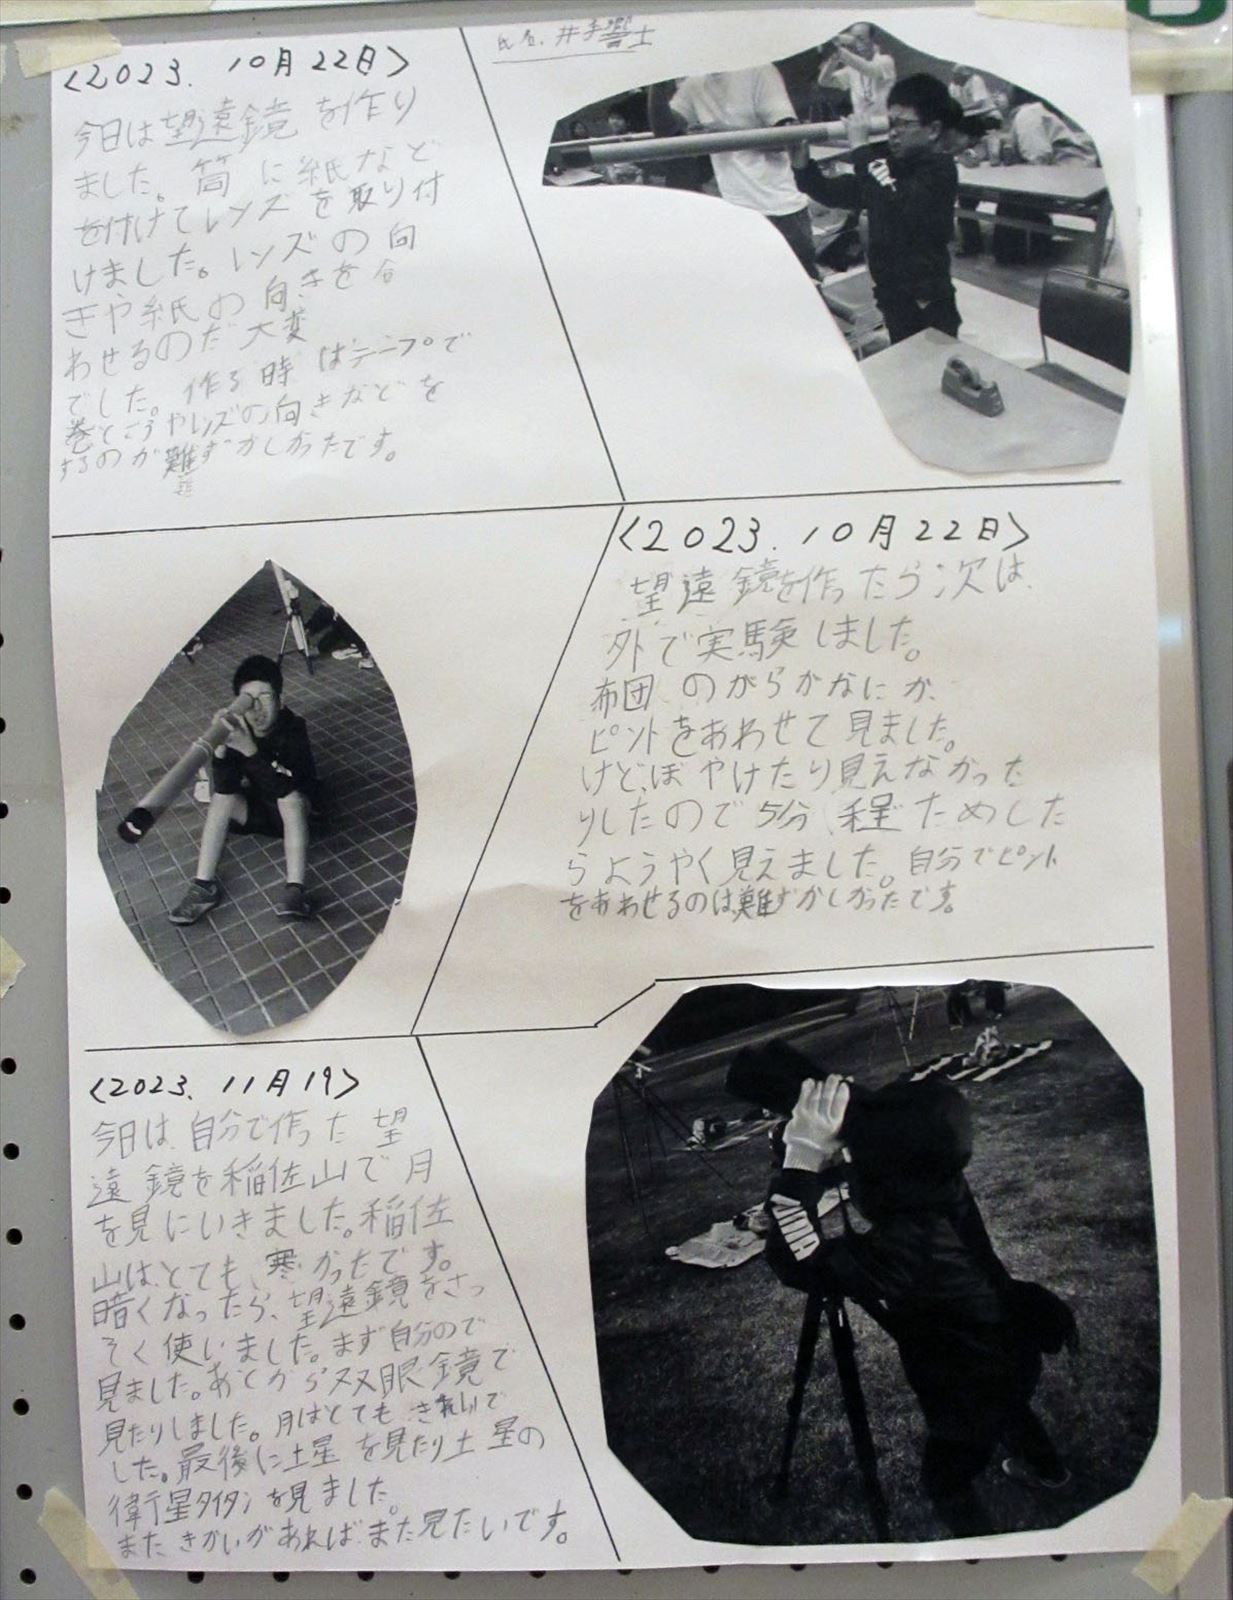 <2023. 10月22日>
今日は望遠鏡を作り
ました。筒に紙など
を付けてレンズを取り付
けました。レンズの向
きや紙の向きを合
わせるのだ大変
でした。作る時はテープで
巻くやレンズの向きなどを
するのが難ずかしかったです。
氏名、井手響士
<2023. 10月22日>
望遠鏡を作ったら次は、
外で実験しました。
布団のがらかなにか、
ピントをあわせて見ました。
けど、ぼやけたり見えなかった
りしたので5分程ためした
らようやく見えました。自分でピント
をあわせるのは難ずかしかったです。
<2023. 11月19>
今日は、自分で作った望
遠鏡を稲佐山で月
を見にいきました。稲佐
山は、とても、寒かったです。
暗くなったら、望遠鏡をさっ
そく使いました。まず自分ので
見ました。あとから双眼鏡で
見たりしました。月はとてもきれいで
した。最後に土星を見たり土星の
衛星タイタンを見ました。
またきかいがあればまた見たいです。
PUMA